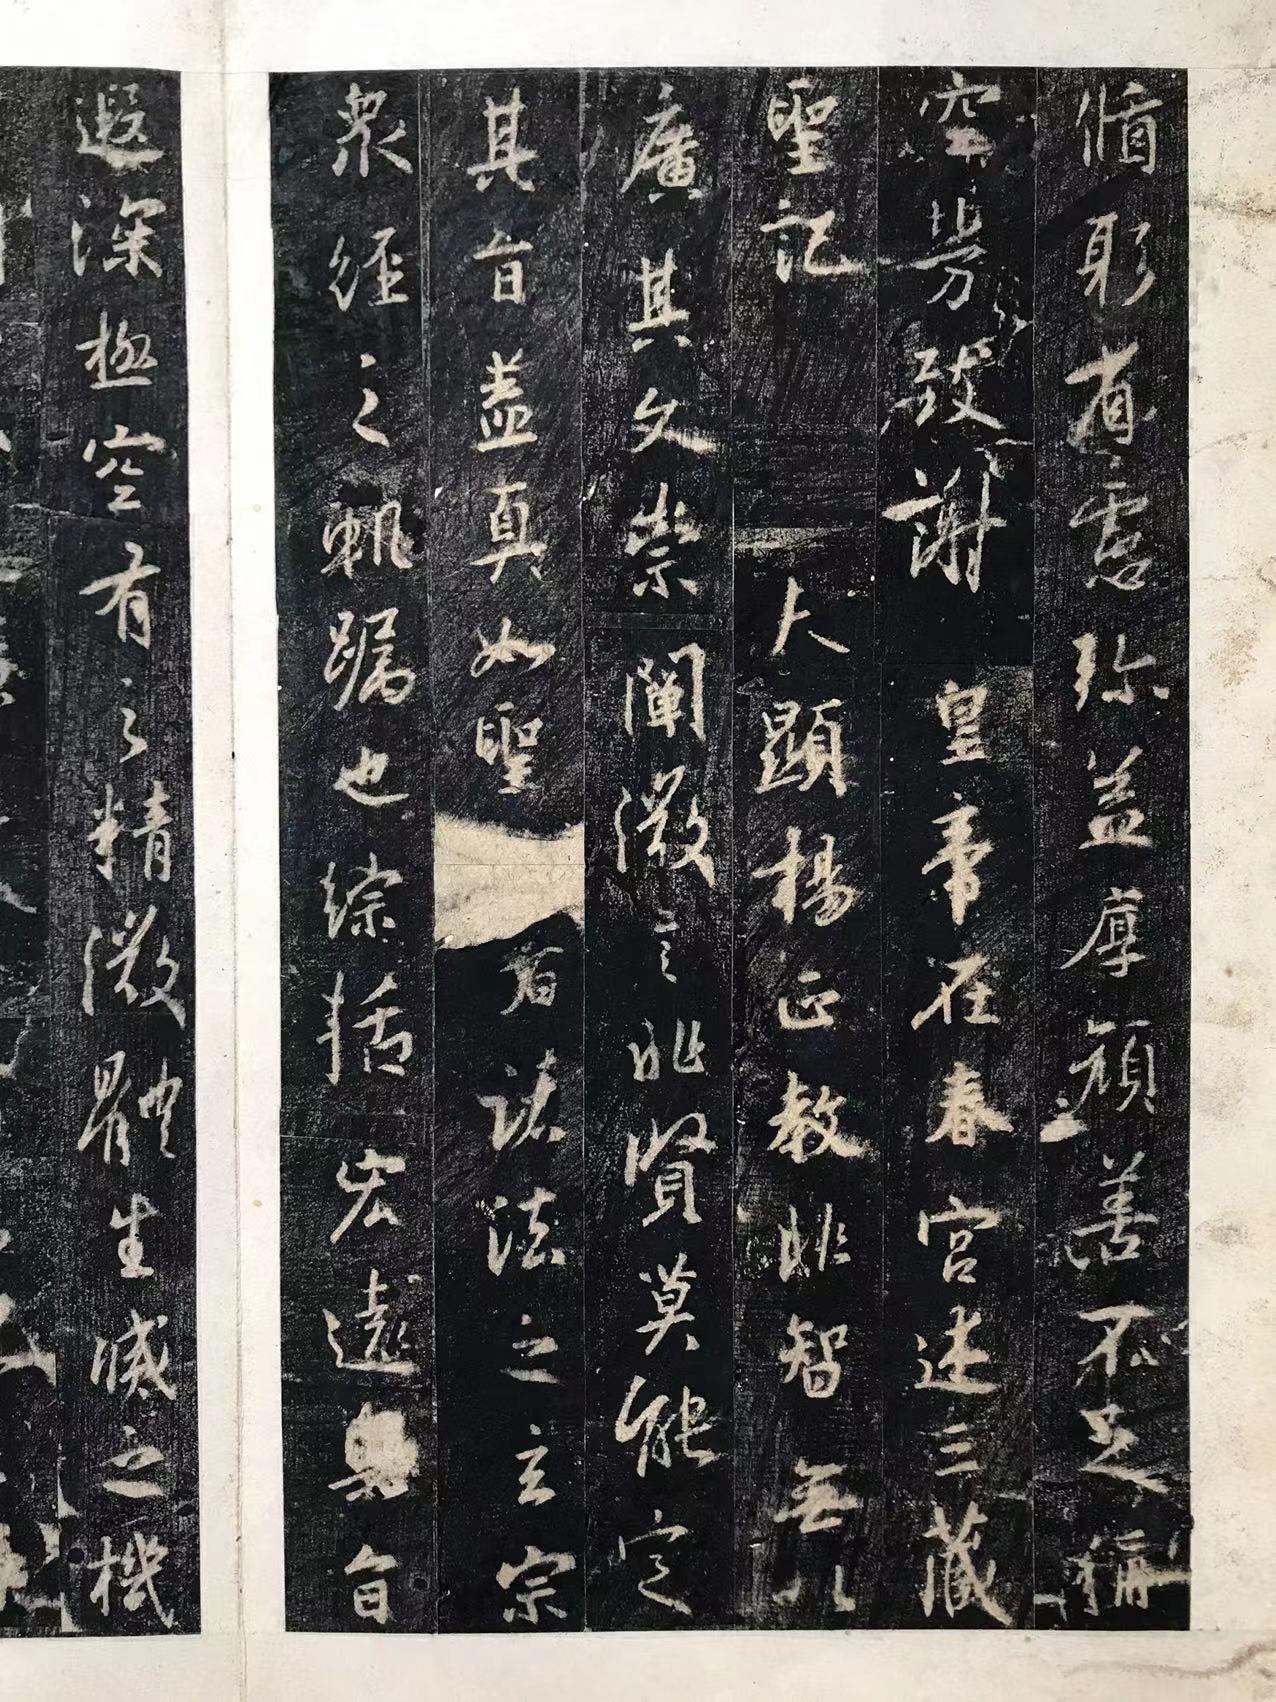 循躬省慮弥益厚顔善不足稱
空勞致謝 皇帝在春宮述三藏
聖記 夫顯揚正教非智無以
廣其文崇闡微言非賢莫能定
其旨盖真如聖者諸法之玄宗
衆經之軌躅也綜括宏遠奧旨
遐深極空有之精微體生滅之機